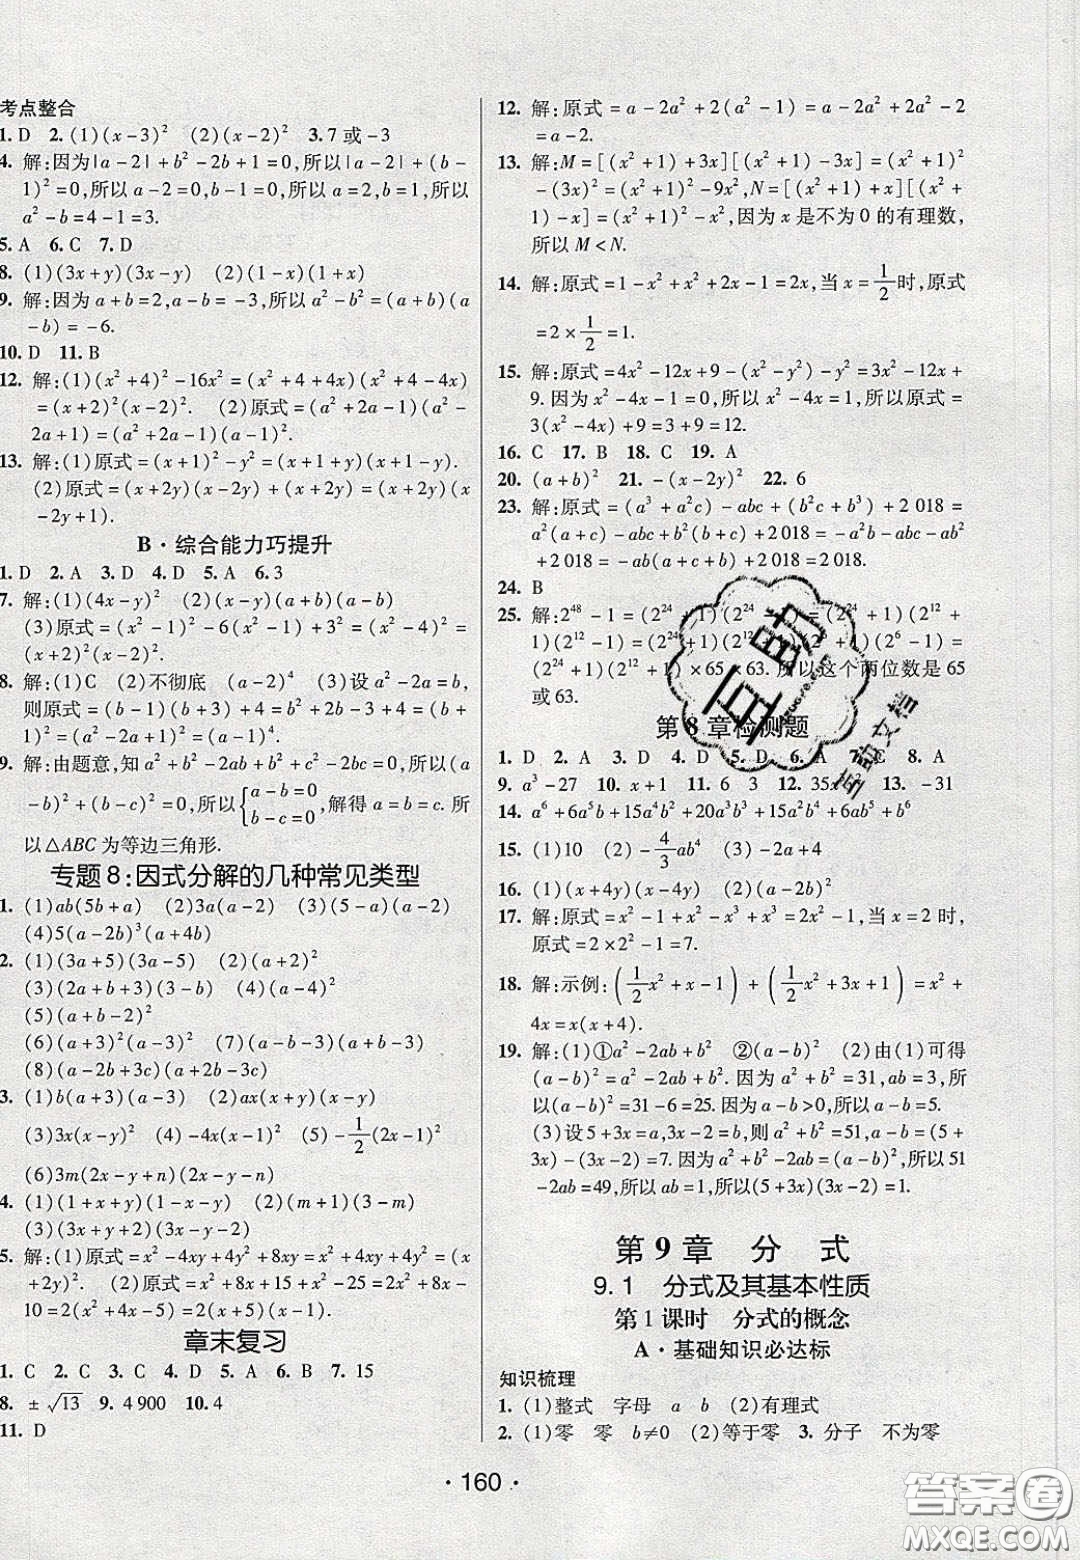 考点整合
1. D 2. (1)(x-3)² (2)(x-2)² 3. 7 或 -3
4. 解:因为|a-2|+b²-2b+1=0,所以|a-2|+(b-
1)²=0,所以 a-2=0,b-1=0,所以 a=2,b=1,所以
a²-b=4-1=3.
5. A 6. C 7. D
8. (1)(3x+y)(3x-y) (2)(1-x)(1+x)
9. 解:因为 a+b=2,a-b=-3,所以 a²-b²=(a+b)(a
-b)=-6.
10. D 11. B
12. 解:(1)(x²+4)²-16x²=(x²+4+4x)(x²+4-4x)
=(x+2)²(x-2)². (2)原式=(a²+2a-1)(a²-
2a+1)=(a²+2a-1)(a-1)².
13. 解:(1)原式=(x+1)²-y²=(x+1+y)(x+1-y).
(2)原式=(x+2y)(x-2y)+(x+2y)=(x+2y)(x
-2y+1).
B·综合能力巧提升
1. D 2. A 3. D 4. D 5. A 6. 3
7. 解:(1)(4x-y)² (2)(x-y)(a+b)(a-b)
(3)原式=(x²-1)²-6(x²-1)+3²=(x²-4)²=(x
+2)²(x-2)².
8. 解:(1)C (2)不彻底 (a-2)⁴ (3)设 a²-2a=b,
则原式=(b-1)(b+3)+4=b²+2b-3+4=(b+
1)²=(a²-2a+1)²=(a-1)⁴.
9. 解:由题意,知 a²+b²-2ab+b²+c²-2bc=0,所以(a
-b)²+(b-c)²=0,所以{a-b=0 b-c=0,解得 a=b=c. 所
以△ABC 为等边三角形.
专题 8:因式分解的几种常见类型
1. (1)ab(5b+a) (2)3a(a-2) (3)(5-a)(a-2)
(4)5(a-2b)³(a+4b)
2. (1)(3a+5)(3a-5) (2)(a+2)²
(3)(2a+b+3)(b-3) (4)(a+b)²(a-b)²
(5)(a+b-2)²
(6)(a+3)²(a-3)² (7)(a-b-3)(a-b+3)
(8)(a-2b+3c)(a-2b-3c)
3. (1)b(a+3)(a-3) (2)ax(x+y)(x-y)
(3)3x(x-y)² (4)-4x(x-1)² (5)-1/2(2x-1)²
(6)3m(2x-y+n)(2x-y-n)
4. (1)(1+x+y)(1-x-y) (2)(m+1)(3-m)
(3)(3x+y+2)(3x-y-2)
5. 解:(1)原式=x²-4xy+4y²+8xy=x²+4xy+4y²=(x
+2y)². (2)原式=x²+8x+15+x²-25=2x²+8x-
10=2(x²+4x-5)=2(x+5)(x-1).
章末复习
1. C 2. C 3. D 4. D 5. A 6. B 7. 15
8. ±√13 9. 4 900 10. 4
11. D
12. 解:原式=a-2a²+2(a²-1)=a-2a²+2a²-2
=a-2.
13. 解:M=[(x²+1)+3x][(x²+1)-3x]=(x²+1)²
-(3x)²=(x²+1)²-9x²,N=[(x²+1)+x][(x²+
1)-x]=(x²+1)²-x²,因为 x 是不为 0 的有理数,
所以 M<N.
14. 解:原式=1-x²+x²+2x-1=2x,当 x=1/2时,原式
=2×1/2=1.
15. 解:原式=4x²-12x+9-(x²-y²)-y²=3x²-12x+
9. 因为 x²-4x-1=0,所以 x²-4x=1,所以原式=
3(x²-4x)+9=3+9=12.
16. C 17. B 18. C 19. A
20. (a+b)² 21. -(x-2y)² 22. 6
23. 解:原式=(a³+a²c)-abc+(b²c+b³)+2 018=
a²(a+c)-abc+b²(b+c)+2 018=-a²b-abc-ab²
+2 018=-ab(a+c+b)+2 018=2 018.
24. B
25. 解:2⁴⁸-1=(2²⁴+1)(2²⁴-1)=(2²⁴+1)(2¹²+
1)(2¹²-1)=(2²⁴+1)(2¹²+1)(2⁶+1)(2⁶-1)=
(2²⁴+1)(2¹²+1)×65×63. 所以这个两位数是 65
或 63.
第 8 章检测题
1. D 2. A 3. D 4. D 5. D 6. A 7. C 8. A
9. a³-27 10. x+1 11. 6 3 12. 35x 13. -31
14. a⁶+6a⁵b+15a⁴b²+20a³b³+15a²b⁴+6ab⁵+b⁶
15. (1)10 (2)-4/3ab⁴
16. (1)(x+4y)(x-4y) (2)-a(a-1)²
17. 解:原式=x²-1+x²-x³+x³=2x²-1,当 x=2 时,
原式=2×2²-1=7.
18. 解:示例:(1/2x²+x-1)+(1/2x²+3x+1)=x²+
4x=x(x+4).
19. 解:(1)①a²-2ab+b² ②(a-b)² (2)由(1)可得
(a-b)²=a²-2ab+b². 因为 a²+b²=31,ab=3,所
以(a-b)²=31-6=25. 因为 a-b>0,所以 a-b=5.
(3)设 5+3x=a,3x-2=b,则 a²+b²=51,a-b=(5+
3x)-(3x-2)=7. 因为(a-b)²=a²-2ab+b²,所以 51
-2ab=49,所以 ab=1,所以(5+3x)(3x-2)=1.
第 9 章 分 式
9.1 分式及其基本性质
第 1 课时 分式的概念
A·基础知识必达标
知识梳理
1. (1)整式 字母 a b (2)有理式
2. (1)零 零 b≠0 (2)等于零 3. 分子 不为零
·160·
答案圈
MXQE.COM